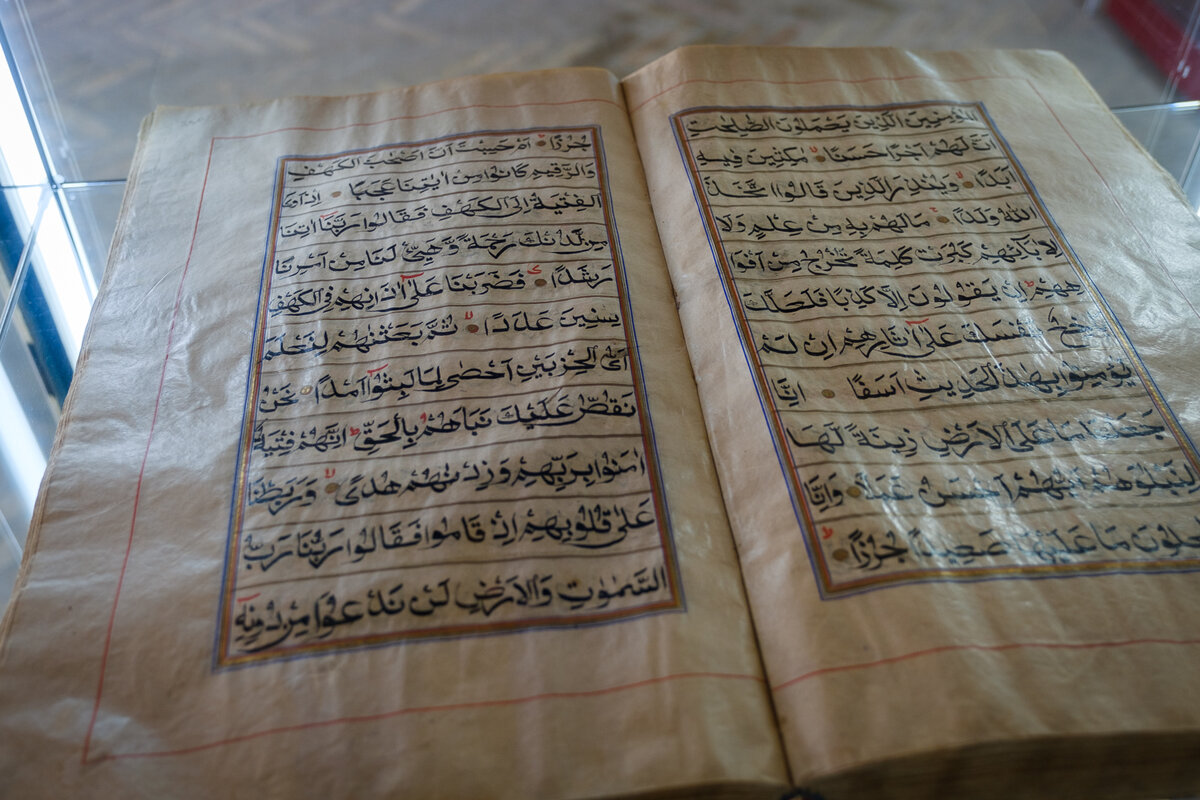 الْمُؤْمِنِينَ الَّذِينَ يَعْمَلُونَ الصّٰلِحٰتِ
اَنَّ لَهُمْ اَجْرًا حَسَنًا مٰكِثِينَ فِيهِ
اَبَدًا وَيُنْذِرَ الَّذِينَ قَالُوا اتَّخَذَ
اللّٰهُ وَلَدًا مَا لَهُمْ بِهِ مِنْ عِلْمٍ وَلَا
لِاٰبَائِهِمْ كَبُرَتْ كَلِمَةً تَخْرُجُ مِنْ اَفْوَا
هِهِمْ اِنْ يَقُولُونَ اِلَّا كَذِبًا فَلَعَلَّكَ
بَاخِعٌ نَفْسَكَ عَلٰى اٰثَارِهِمْ اِنْ لَمْ
يُؤْمِنُوا بِهٰذَا الْحَدِيثِ اَسَفًا اِنَّا
جَعَلْنَا مَا عَلَى الْاَرْضِ زِينَةً لَهَا
لِنَبْلُوَهُمْ اَيُّهُمْ اَحْسَنُ عَمَلًا وَاِنَّا
لَجٰعِلُونَ مَا عَلَيْهَا صَعِيدًا جُرُزًا
جُرُزًا اَمْ حَسِبْتَ اَنَّ اَصْحٰبَ الْكَهْفِ
وَالرَّقِيمِ كَانُوا مِنْ اٰيٰتِنَا عَجَبًا اِذْ اَوَى
الْفِتْيَةُ اِلَى الْكَهْفِ فَقَالُوا رَبَّنَا اٰتِنَا
مِنْ لَدُنْكَ رَحْمَةً وَهَيِّئْ لَنَا مِنْ اَمْرِنَا
رَشَدًا فَضَرَبْنَا عَلٰى اٰذَانِهِمْ فِى الْكَهْفِ
سِنِينَ عَدَدًا ثُمَّ بَعَثْنٰهُمْ لِنَعْلَمَ
اَىُّ الْحِزْبَيْنِ اَحْصٰى لِمَا لَبِثُوا اَمَدًا نَحْنُ
نَقُصُّ عَلَيْكَ نَبَاَهُمْ بِالْحَقِّ اِنَّهُمْ فِتْيَةٌ
اٰمَنُوا بِرَبِّهِمْ وَزِدْنٰهُمْ هُدًى وَرَبَطْنَا
عَلٰى قُلُوبِهِمْ اِذْ قَامُوا فَقَالُوا رَبُّنَا رَبُّ
السَّمٰوٰتِ وَالْاَرْضِ لَنْ نَدْعُوَا مِنْ دُونِهِ